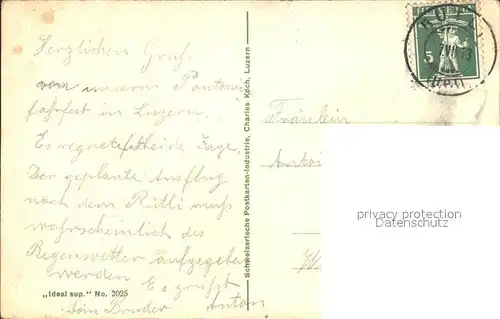 Herzlichen Gruß
von unserm Pontonier
fahrfest in Luzern.
Es regnete beide Tage
Der geplante Ausflug
nach dem Rütli muß
wahrscheinlich des
Regenwetter aufgegeben
werden Es grüßt
dein Bruder Anton
„Ideal sup." No. 2025
Schweizerische Postkarten-Industrie, Charles Koch, Luzern
5
Fräulein
privacy protection
Datenschutz